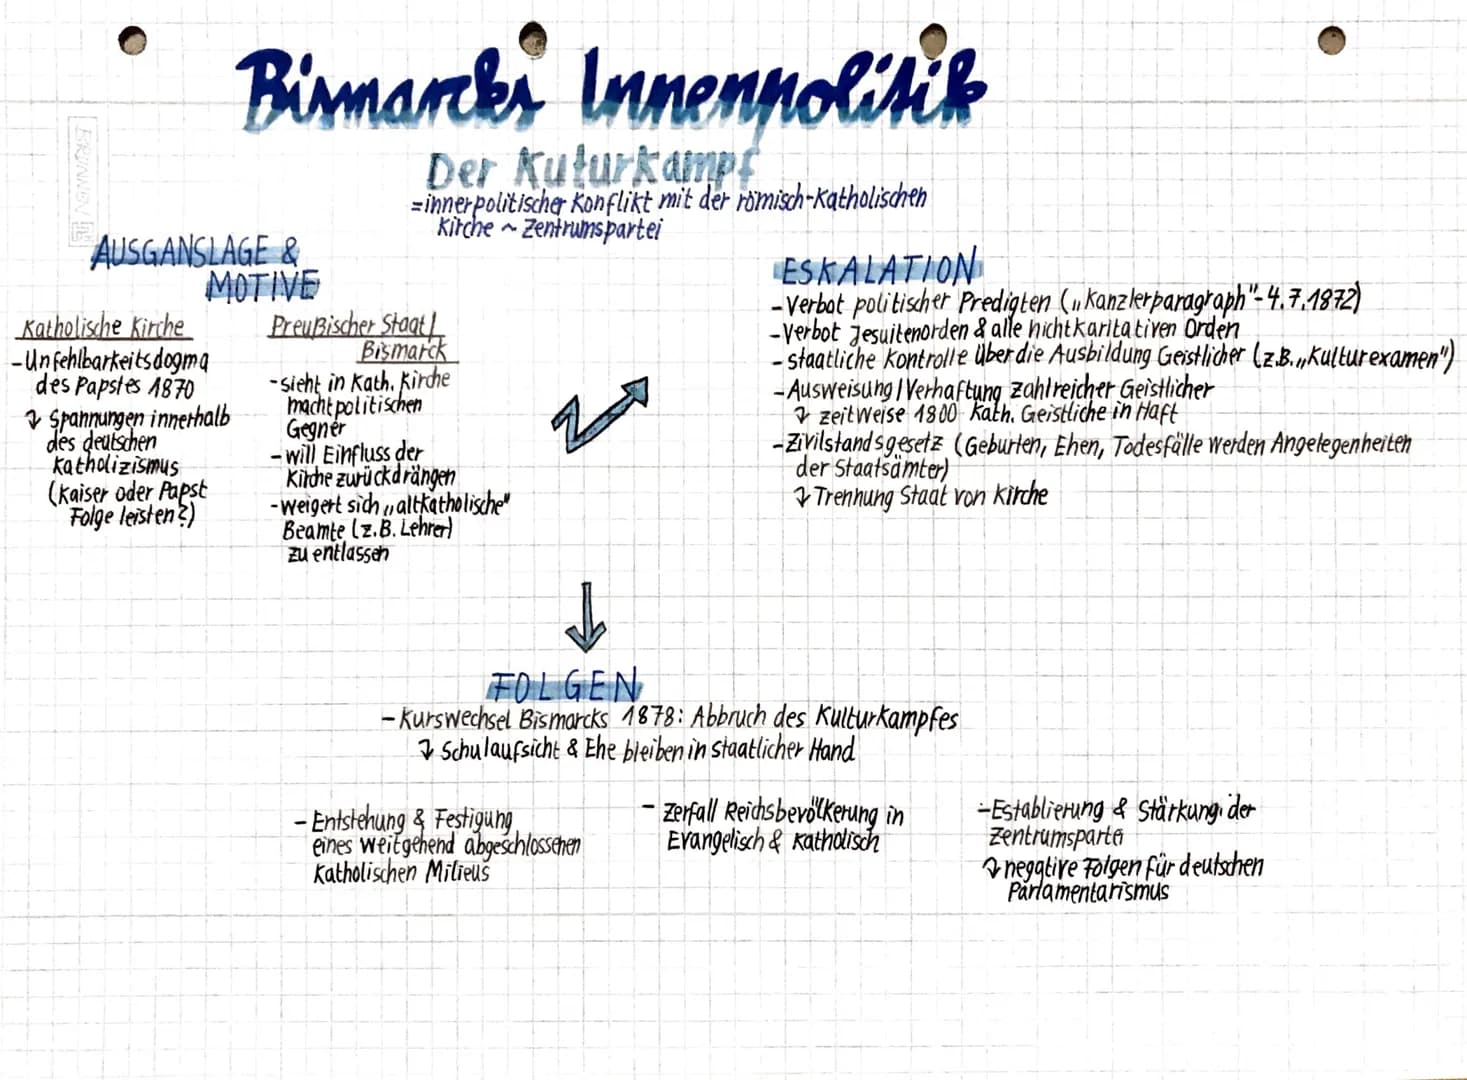 Bismarcks Innenpolitik
Der Kuturkampf
=innerpolitischer Konflikt mit der römisch-Katholischen
Kirche ~ Zentrumspartei
BRUNNEN
AUSGANSLAGE &
MOTIVE
Katholische Kirche
-Unfehlbarkeitsdogma
des Papstes 1870
↴ Spannungen innerhalb
des deutschen
Katholizismus
(Kaiser oder Papst
Folge leisten?)
Preußischer Staat/
Bismarck
-sieht in Kath. Kirche
machtpolitischen
Gegner
-will Einfluss der
Kirche zurückdrängen
-weigert sich „altkatholische"
Beamte (z.B. Lehrer)
zu entlassen
ESKALATION
-Verbot politischer Predigten („Kanzlerparagraph"-4.7.1872)
-Verbot Jesuitenorden & alle nichtkaritativen Orden
-staatliche Kontrolle über die Ausbildung Geistlicher (z.B. „Kulturexamen")
-Ausweisung/Verhaftung zahlreicher Geistlicher
↴ zeitweise 1800 Kath. Geistliche in Haft
-Zivilstandsgesetz (Geburten, Ehen, Todesfälle werden Angelegenheiten
der Staatsämter)
↴ Trennung Staat von Kirche
FOLGEN
-Kurswechsel Bismarcks 1878: Abbruch des Kulturkampfes
↴ Schulaufsicht & Ehe bleiben in staatlicher Hand
- Entstehung & Festigung
eines weitgehend abgeschlossenen
Katholischen Milieus
- Zerfall Reichsbevölkerung in
Evangelisch & Katholisch
-Establierung & Stärkung der
Zentrumspartei
↴ negative Folgen für deutschen
Parlamentarismus